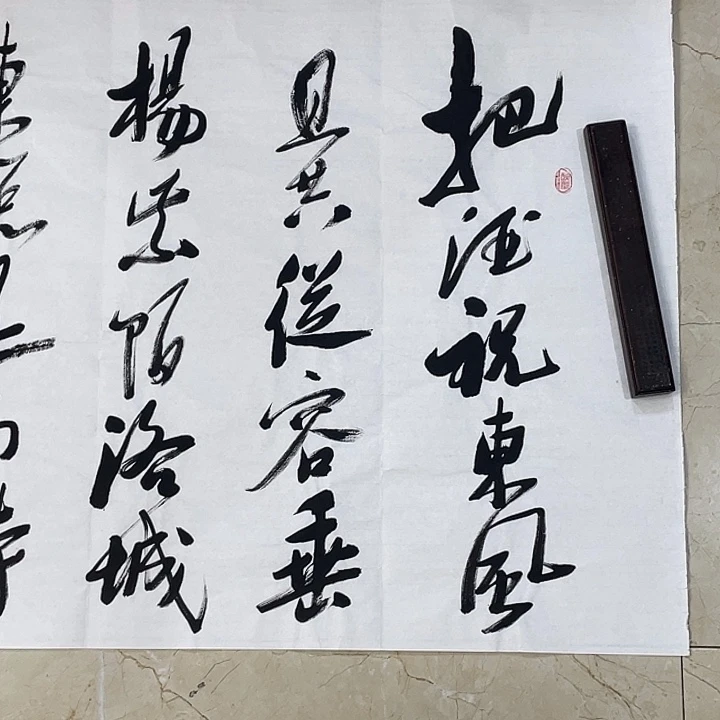 把酒祝東風
且共從容垂
楊紫陌洛城
東